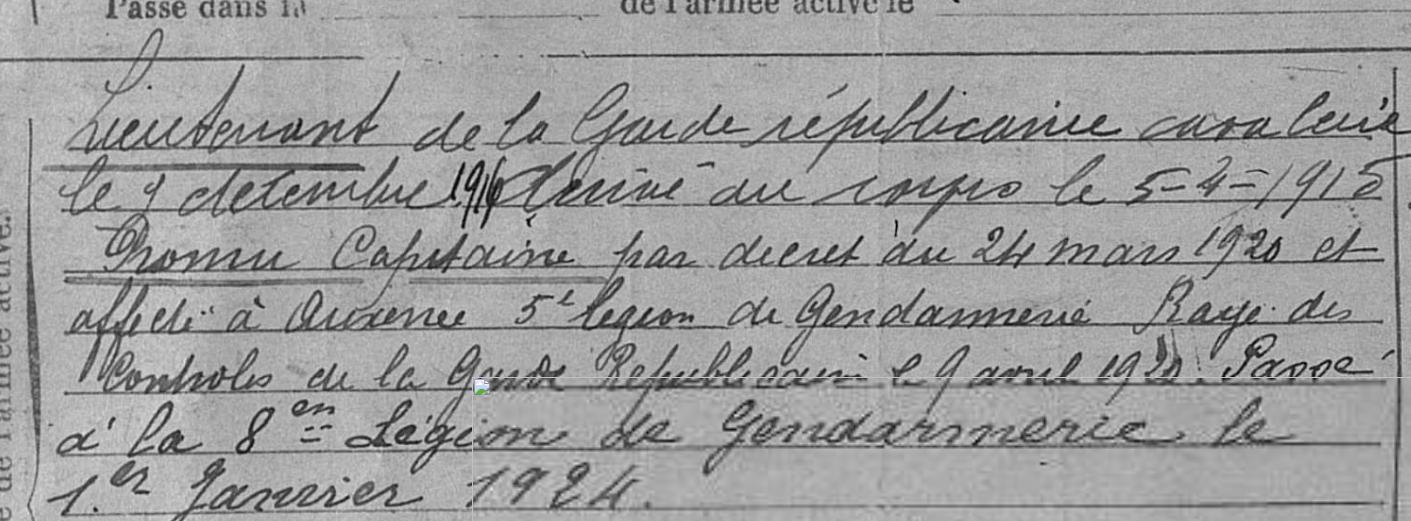 Passé dans la de l'armée active le
Lieutenant de la Garde républicaine cavalerie
le 9 décembre 1914 Arrivé au corps le 5-2-1915
Promu Capitaine par decret du 24 mars 1920 et
affecté à Auxerre 5e legion de Gendarmerie Rayé des
Controles de la Garde Republicaine le 9 avril 1920. Passé
à la 8en Légion de Gendarmerie le
1.er Janvier 1924.
de l'armée active.